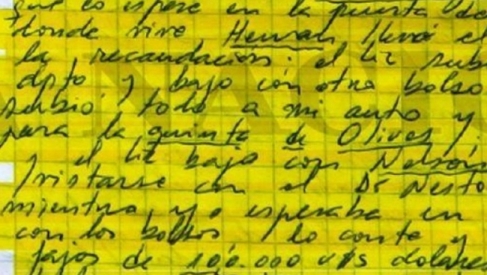 que lo espere en la puerta de
donde vive Hernan llevó el
la recaudacion. el lic subi
dpto y bajo con otro bolso
subio todo a mi auto y
para la quinta de Olivos y
y el lic bajo con Nelson
tristarse con el Dr Nesto
mientras yo esperaba en
con los bolsos, lo conte y
fajos de 100.000 u$s dolares